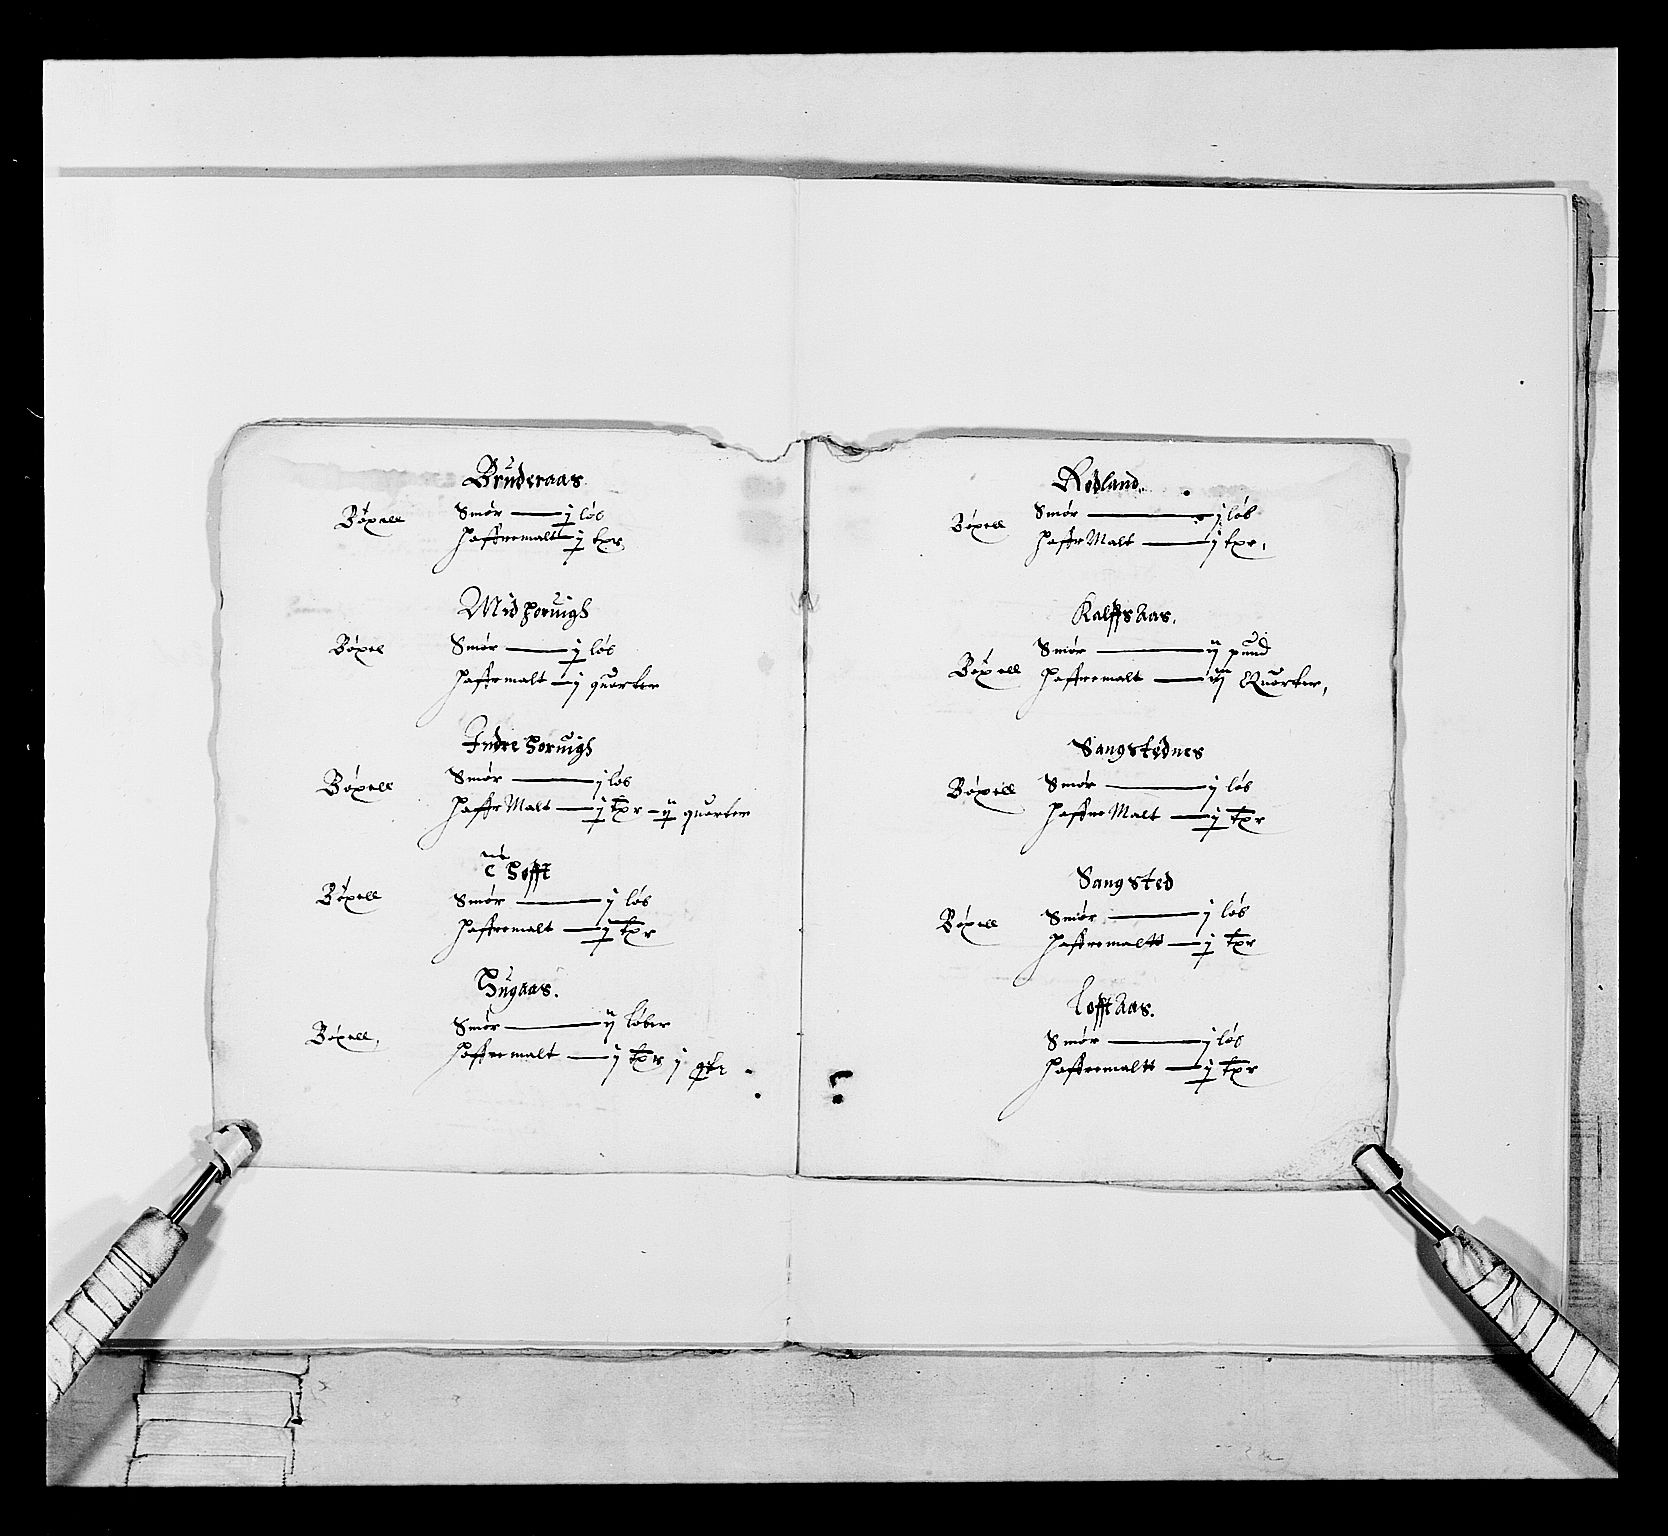 Bruderaas.
Bøxell Smør — j løs
Haffremalt — j tpr
Midhoruigh
Bøxel Smør — j løb
Haffremalt — j quarter
Indre horuigh
Bøxell Smør — j løb
Haffr Malt — j tpr — ij quarter
Hofft
Bøxell Smør — j løb
Haffremalt — j tpr
Hugaas.
Bøxell, Smør — ij løber
Haffremalt — j tpr j qtr
Rødland.
Bøxell Smør — j løb
Haffr Malt — j tpr,
Kalffsaas.
Bøxell Smør — ij pund
Haffremalt — iij Quarter,
Sangstednes
Bøxell Smør — j løb
Haffre Malt — j tpr
Sangsted
Bøxell Smør — j løb
Haffremaltt — j tpr
Lofftaas.
Smør — j løb
Haffremaltt — j tpr